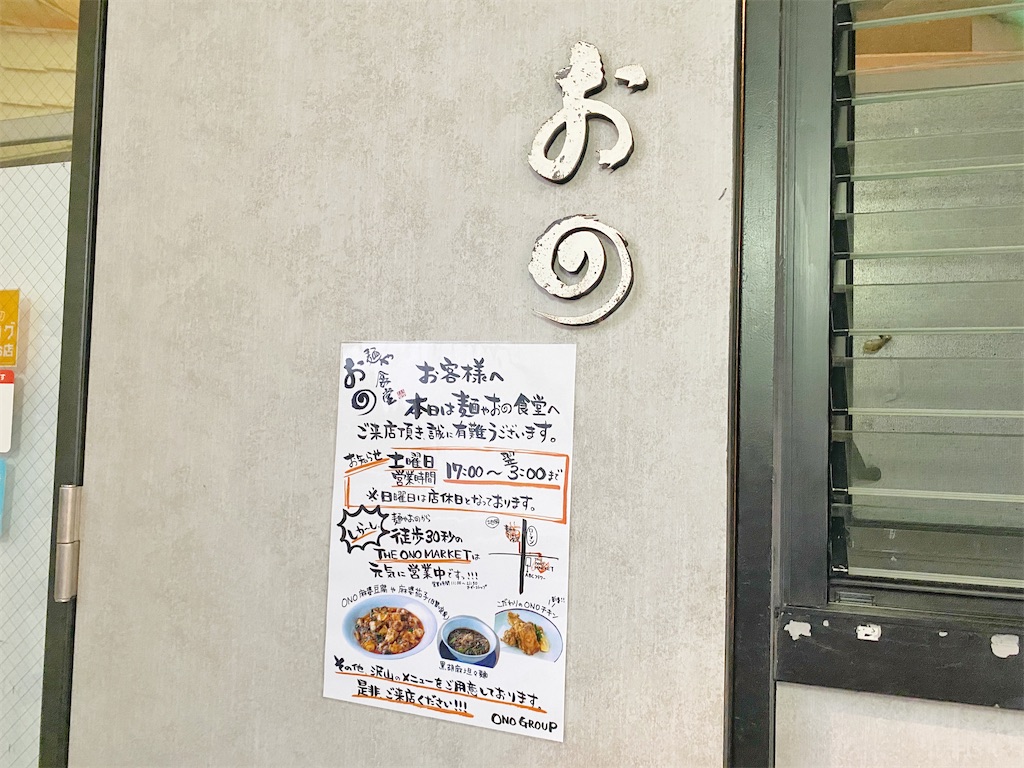 お
の
麺や
食堂
おの
お客様へ
本日は麺やおの食堂へ
ご来店頂き誠に有難うございます。
お知らせ
土曜日
営業時間
17:00〜翌3:00まで
※日曜日は店休日となっております。
しかーし
麺やおのから
徒歩30秒の
THE ONO MARKETは
元気に営業中ですっ!!!
ONO麻婆豆腐や麻婆茄子
こだわりのONOチキン
黒胡麻坦々麺
その他、沢山のメニューをご用意しております。
是非ご来店ください!!!
ONO GROUP